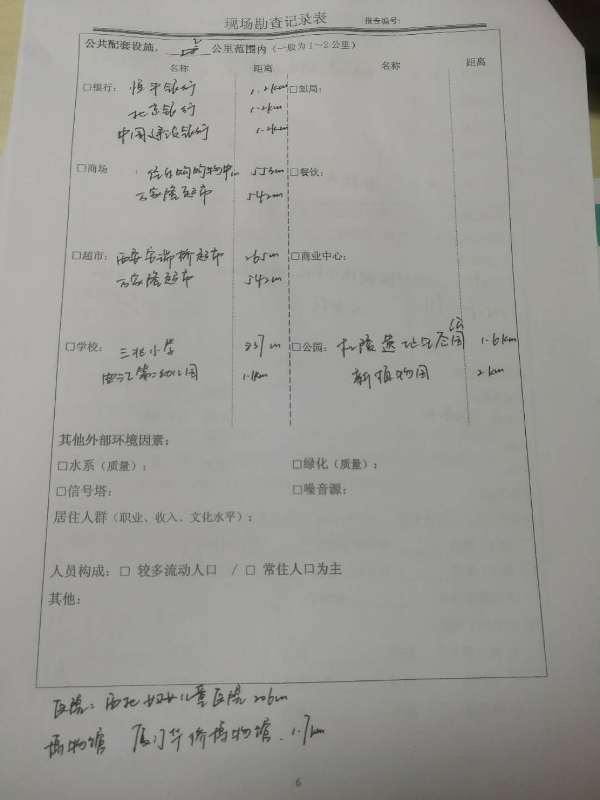 现场勘查记录表 报告编号:
公共配套设施, 2 公里范围内 (一般为1~2公里)
名称 距离 名称 距离
□银行: 恒丰银行 1.2km □邮局:
北京银行 1.2km
中国建设银行 1.2km
□商场 553m □餐饮:
万家隆超市 542m
□超市: 265m □商业中心:
万家隆超市 542m
□学校: 三兆小学 837m □公园: 杜陵遗址生态公园 1.6km
曲江第二幼儿园 1.1km 新植物园 2km
其他外部环境因素:
□水系 (质量): □绿化 (质量):
□信号塔: □噪音源:
居住人群 (职业、收入、文化水平):
人员构成: □ 较多流动人口 / □ 常住人口为主
其他:
医院: 西北妇女儿童医院 206m
博物馆 厦门华侨博物馆. 1.7km
6